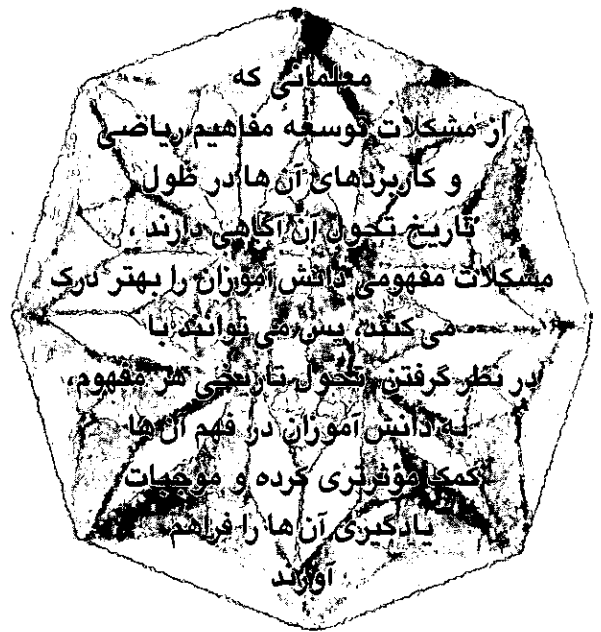 معلمانی که
از مشکلات توسعهٔ مفاهیم ریاضی
و کاربردهای آن ها در طول
تاریخ تحول آن آگاهی دارند ،
مشکلات مفهومی دانش آموزان را بهتر درک
می کنند، پس می توانند با
در نظر گرفتن تحول تاریخی هر مفهوم،
به دانش آموزان در فهم آن ها
کمک مؤثرتری کرده و موجبات
یادگیری آن ها را فراهم
آورند